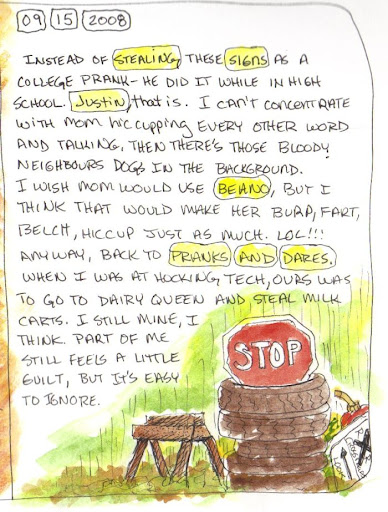 09 15 2008
INSTEAD OF STEALING THESE SIGNS AS A
COLLEGE PRANK - HE DID IT WHILE IN HIGH
SCHOOL. JUSTIN, that is. I CAN'T CONCENTRATE
WITH MOM hiccupping EVERY OTHER WORD
AND TALKING, THEN THERE'S THOSE BLOODY
NEIGHBOURS DOGS IN THE BACKGROUND.
I WISH MOM WOULD USE BEANO, BUT I
THINK THAT WOULD MAKE HER BURP, FART,
BELCH, HICCUP JUST AS MUCH. LOL!!!
ANYWAY, BACK TO PRANKS AND DARES.
WHEN I WAS AT HOCKING TECH, OURS WAS
TO GO TO DAIRY QUEEN AND STEAL MILK
CARTS. I STILL MINE, I
THINK. PART OF ME
STILL FEELS A LITTLE
GUILT, BUT IT'S EASY
TO IGNORE.
STOP